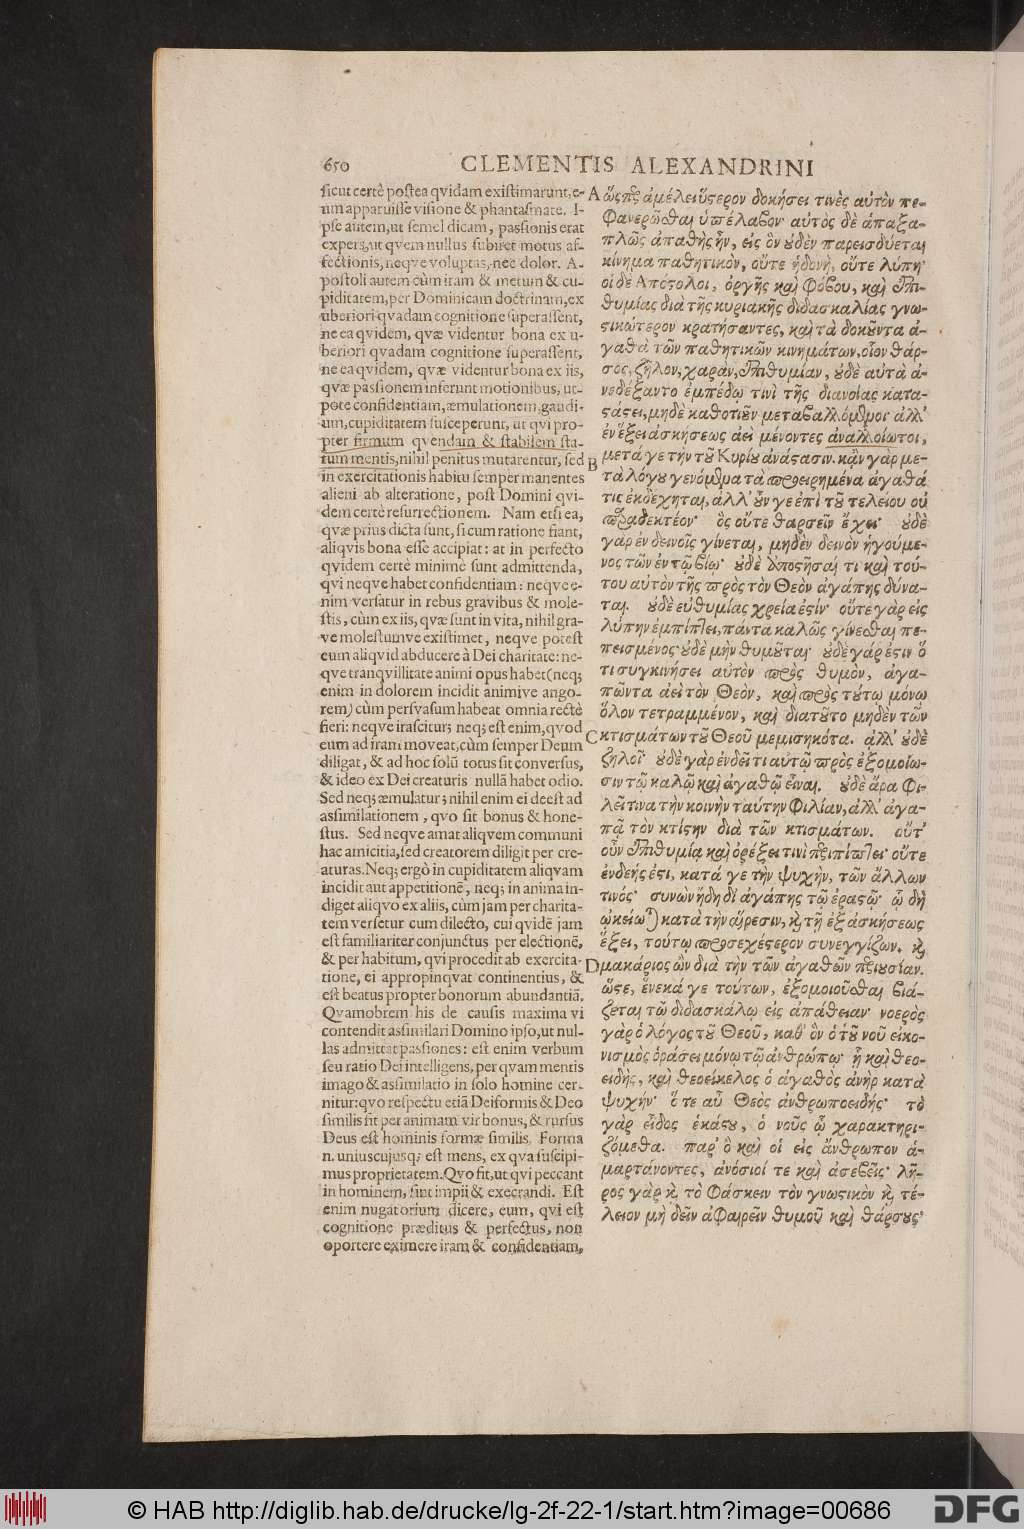 650
CLEMENTIS ALEXANDRINI
sicut certè postea qvidam existimarunt, e-
um apparuisse visione & phantasmate. I-
pse autem, ut semel dicam, passionis erat
expers, ut qvem nullus subiret motus af-
fectionis, neqve voluptas, nec dolor. A-
postoli autem cùm iram & metum & cu-
piditatem, per Dominicam doctrinam, ex
uberiori qvadam cognitione superassent,
ne ea qvidem, qvæ videntur bona ex u-
beriori qvadam cognitione superassent,
ne ea qvidem, qvæ videntur bona ex iis,
qvæ passionem inferunt motionibus, ut-
pote confidentiam, æmulationem, gaudi-
um, cupiditatem susceperunt, ut qvi pro-
pter firmum qvendam & stabilem sta-
tum mentis, nihil penitus mutarentur, sed
in exercitationis habitu semper manentes
alieni ab alteratione, post Domini qvi-
dem certè resurrectionem. Nam etsi ea,
qvæ prius dicta sunt, si cum ratione fiant,
aliqvis bona esse accipiat: at in perfecto
qvidem certè minimè sunt admittenda,
qvi neqve habet confidentiam: neqve e-
nim versatur in rebus gravibus & mole-
stis, cùm ex iis, qvæ sunt in vita, nihil gra-
ve molestumve existimet, neqve potest
eum aliqvid abducere à Dei charitate: ne-
qve tranqvillitate animi opus habet (neqꝫ
enim in dolorem incidit animive ango-
rem) cùm persvasum habeat omnia rectè
fieri: neqve irascitur; neqꝫ est enim, qvod
eum ad iram moveat, cùm semper Deum
diligat, & ad hoc solũ totus sit conversus,
& ideo ex Dei creaturis nullã habet odio.
Sed neqꝫ æmulatur; nihil enim ei deest ad
assimilationem, qvo sit bonus & hone-
stus. Sed neqve amat aliqvem communi
hac amicitia, sed creatorem diligit per cre-
aturas. Neqꝫ ergò in cupiditatem aliqvam
incidit aut appetitionẽ, neqꝫ in anima in-
diget aliqvo ex aliis, cùm jam per charita-
tem versetur cum dilecto, cui qvidẽ jam
est familiariter conjunctus per electionẽ,
& per habitum, qvi procedit ab exercita-
tione, ei appropinqvat continentius, &
est beatus propter bonorum abundantiã.
Qvamobrem his de causis maxima vi
contendit assimilari Domino ipso, ut nul-
las admittat passiones: est enim verbum
seu ratio Dei intelligens, per qvam mentis
imago & assimilatio in solo homine cer-
nitur: qvo respectu etiã Deiformis & Deo
similis sit per animam vir bonus, & rursus
Deus est hominis formæ similis. Forma
n. uniuscujusqꝫ est mens, ex qva suscipi-
mus proprietatem. Qvo fit, ut qvi peccant
in hominem, sint impii & execrandi. Est
enim nugatorium dicere, eum, qvi est
cognitione præditus & perfectus, non
oportere eximere iram & confidentiam,
A ὥςπερ ἀμέλει ὕςερον δοκήσει τινὲς αὐτὸν πε-
φανερῶσθαι ὑπέλαβον· αὐτὸς δὲ ἁπαξα-
πλῶς ἀπαθὴς ἦν, εἰς ὃν ȣ̓δὲν παρεισδύεται
κίνημα παθητικὸν, οὔτε ἡδονὴ, οὔτε λύπη·
οἱ δὲ Ἀπόςολοι, ὀργῆς καὶ φόβου, καὶ ἐπι-
θυμίας διὰ τῆς κυριακῆς διδασκαλίας γνω-
ςικώτερον κρατήσαντες, καὶ τὰ δοκȣ͂ντα ἀ-
γαθὰ τῶν παθητικῶν κινημάτων, οἷον θάρ-
σος, ζῆλον, χαρὰν, ἐπιθυμίαν, ȣ̓δὲ αὐτὰ ἀ-
νεδέξαντο ἐμπέδῳ τινὶ τῆς διανοίας κατα-
ςάσει, μηδὲ καθοτιȣ͂ν μεταβαλλόμενοι· ἀλλ'
ἐν ἕξει ἀσκήσεως ἀεὶ μένοντες ἀναλλοίωτοι,
B μετά γε τὴν τȣ͂ Κυρίȣ ἀνάςασιν. κᾂν γὰρ με-
τὰ λόγȣ γενόμενα τὰ προειρημένα ἀγαθά
τις ἐκδέχηται, ἀλλ' ȣ̓͂ν γε ἐπὶ τȣ͂ τελείου οὐ
παραδεκτέον· ὃς οὔτε θαρσεῖν ἔχει· ȣ̓δὲ
γὰρ ἐν δεινοῖς γίνεται, μηδὲν δεινὸν ἡγούμε-
νος τῶν ἐν τῷ βίῳ· ȣ̓δὲ ἀποςῆσαί τι καὶ τού-
του αὐτὸν τῆς πρὸς τὸν Θεὸν ἀγάπης δύνα-
ται. ȣ̓δὲ εὐθυμίας χρεία ἐςίν· οὔτε γὰρ εἰς
λύπην ἐμπίπτει, πάντα καλῶς γίνεσθαι πε-
πεισμένος· ȣ̓δὲ μὴν θυμȣ͂ται· ȣ̓δὲ γάρ ἐςιν ὅ
τι συγκινήσει αὐτὸν πρὸς θυμὸν, ἀγα-
πῶντα ἀεὶ τὸν Θεὸν, καὶ πρὸς τȣ́τῳ μόνῳ
ὅλον τετραμμένον, καὶ διατȣ͂το μηδὲν τῶν
C κτισμάτων τȣ͂ Θεοῦ μεμισηκότα. ἀλλ' ȣ̓δὲ
ζηλοῖ· ȣ̓δὲ γὰρ ἐνδεῖ τι αὐτῷ πρὸς ἐξομοίω-
σιν τῷ καλῷ καὶ ἀγαθῷ εἶναι. ȣ̓δὲ ἄρα φι-
λεῖ τινα τὴν κοινὴν ταύτην φιλίαν, ἀλλ' ἀγα-
πᾷ τὸν κτίςην διὰ τῶν κτισμάτων. οὔτ'
οὖν ἐπιθυμίᾳ καὶ ὀρέξει τινὶ περιπίπτει· οὔτε
ἐνδεής ἐςι, κατά γε τὴν ψυχὴν, τῶν ἄλλων
τινός· συνὼν ἤδη δι' ἀγάπης τῷ ἐραςῷ· ᾧ δὴ
ᾠκείωται κατὰ τὴν αἵρεσιν, καὶ τῇ ἐξ ἀσκήσεως
ἕξει, τούτῳ προσεχέςερον συνεγγίζων. καὶ
D μακάριος ὢν διὰ τὴν τῶν ἀγαθῶν περιουσίαν.
ὥςε, ἕνεκά γε τούτων, ἐξομοιοῦσθαι βιά-
ζεται τῷ διδασκάλῳ εἰς ἀπάθειαν· νοερὸς
γὰρ ὁ λόγος τȣ͂ Θεοῦ, καθ' ὃν ὁ τȣ͂ νοῦ εἰκο-
νισμὸς ὁράσει μόνῳ τῷ ἀνθρώπῳ· ᾗ καὶ θεο-
ειδὴς, καὶ θεοείκελος ὁ ἀγαθὸς ἀνὴρ κατὰ
ψυχήν· ὅ τε αὖ Θεὸς ἀνθρωποειδής· τὸ
γὰρ εἶδος ἑκάςȣ, ὁ νοῦς ᾧ χαρακτηρι-
ζόμεθα. παρ' ὃ καὶ οἱ εἰς ἄνθρωπον ἁ-
μαρτάνοντες, ἀνόσιοί τε καὶ ἀσεβεῖς· λῆ-
ρος γὰρ καὶ τὸ φάσκειν τὸν γνωςικὸν καὶ τέ-
λειον μὴ δεῖν ἀφαιρεῖν θυμοῦ καὶ θάρσȣς·
© HAB http://diglib.hab.de/drucke/lg-2f-22-1/start.htm?image=00686
DFG